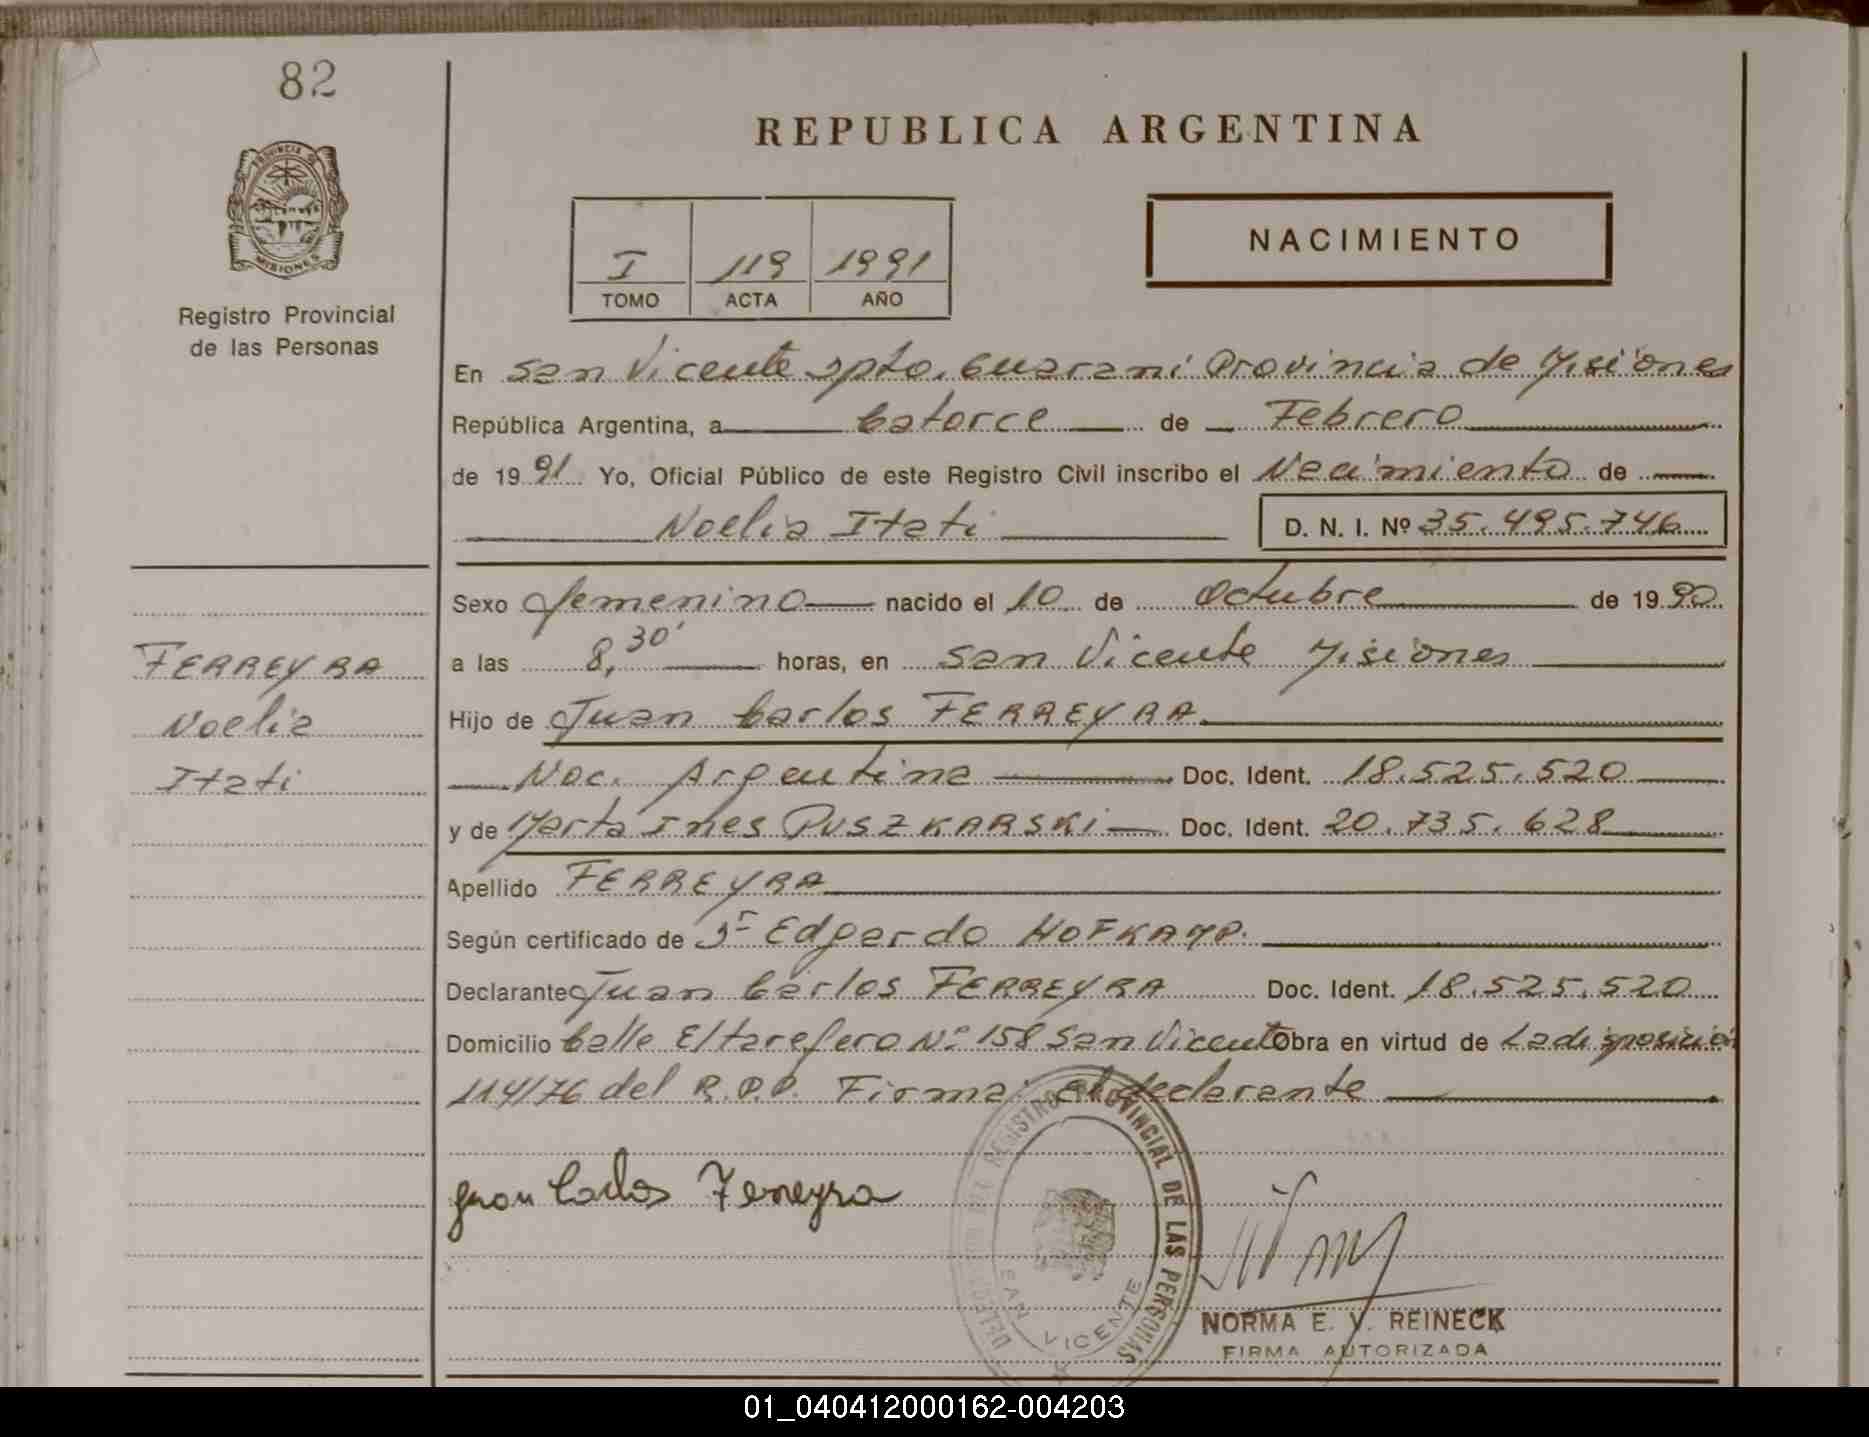 82
REPUBLICA ARGENTINA
PROVINCIA DE
MISIONES
Registro Provincial
de las Personas
NACIMIENTO
I 119 1991
TOMO ACTA AÑO
En San Vicente Dpto. Guarani Provincia de Misiones
República Argentina, a catorce de Febrero
de 1991 Yo, Oficial Público de este Registro Civil inscribo el Nacimiento de
Noelia Itati D. N. I. Nº 35.495.746
Sexo femenino nacido el 10 de Octubre de 1990
FERREYRA
Noelia
Itati
a las 8,30' horas, en San Vicente Misiones
Hijo de Juan Carlos FERREYRA
Nac. Argentina Doc. Ident. 18.525.520
y de Marta Ines PUSZKARSKI Doc. Ident. 20.735.628
Apellido FERREYRA
Según certificado de Dr Edgardo HOFKAMP.
Declarante Juan Carlos FERREYRA Doc. Ident. 18.525.520
Domicilio Calle El tarefero Nº 158 San Vicente Obra en virtud de La disposición
114/76 del R.P.P. Firma: el declarante
Juan Carlos Ferreyra
REGISTRO PROVINCIAL DE LAS PERSONAS
SAN VICENTE
NORMA E. V. REINECK
FIRMA AUTORIZADA
01_040412000162-004203